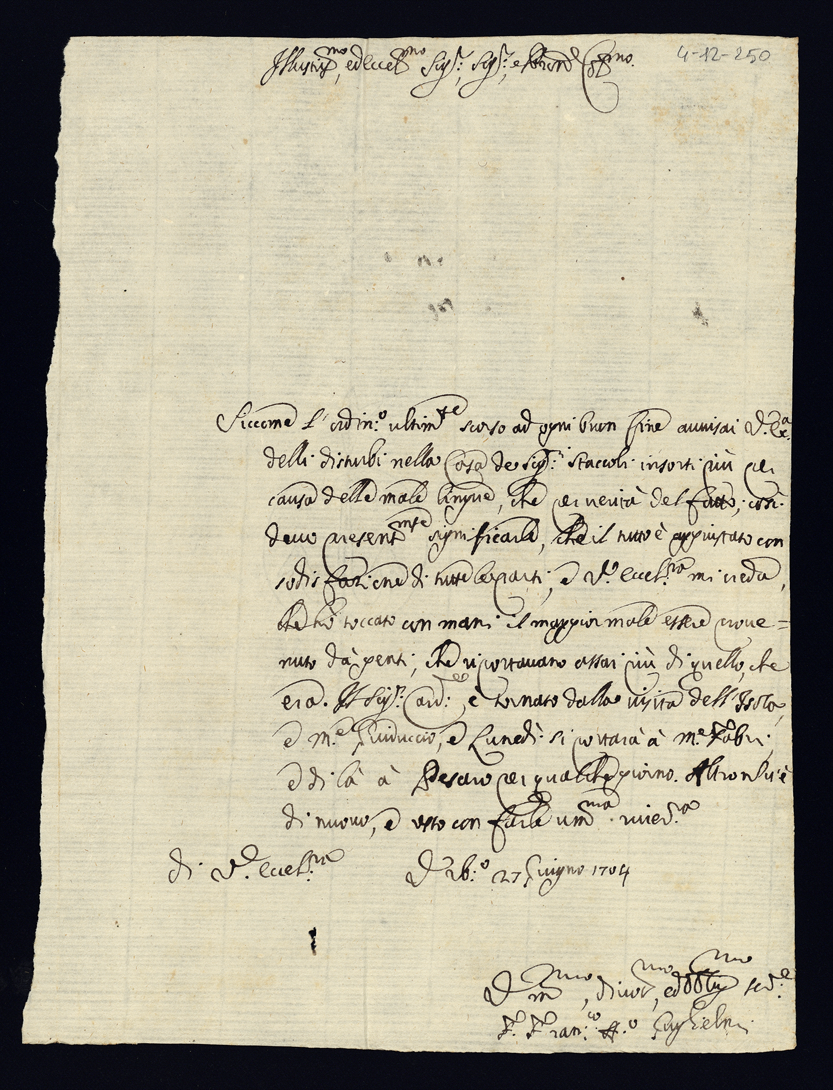 4-12-250
Illustmo, ed Eccelmo Sigr:, Sigr:, e Pron Colmo.
Siccome l'ordino: ultimte scorso ad ogni buon fine avvisai V: Ea
delli disturbi nella Casa de Sigri: Staccoli insorti più per
causa delle male lingue, che per verità del fatto; così
devo presentemte significarle, che il tutto è aggiustato con
sodisfazione di tutte le parti, e V: Eccelza mi creda,
che hò toccato con mani il maggior male essere prove=
nuto dà genti, che riportavano assai più di quello, che
era. Il Sigr: Cardle: è tornato dalla visita dell'Isola,
e Me Guiduccio, e Lunedì si portarà à Me Fabri,
e di là à Pesaro per qualche giorno. Altro non v'è
di nuovo, e resto con farle umma rivera
di V: Eccelza Urbo: 27 Giugno 1704
Ummo, divotmo, ed obbligmo Serve:
Fr Francco Guglielmi